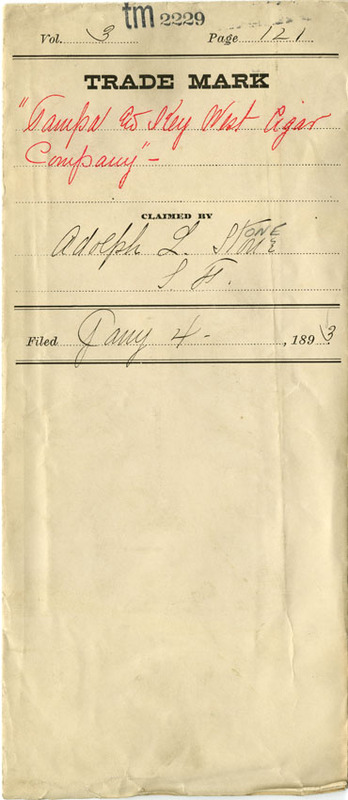 tm 2229
Vol. 3 Page 121
TRADE MARK
"Tampa & Key West Cigar
Company" -
CLAIMED BY
Adolph L. Stone
STONE
S F.
Filed Jany 4 - , 1893